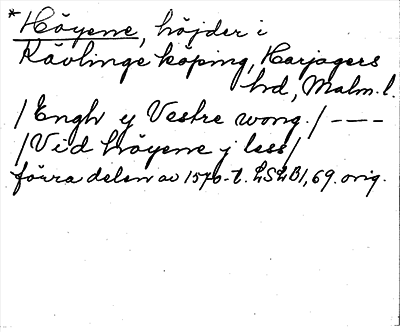 *Höyene, höjder i
Kävlinge köping, Harjagers
hd, Malm. l.
/Engh y Vestre wong./ ----
/Vid höyene j less/
förra delen av 1570-t. LSLB1, 69. orig.